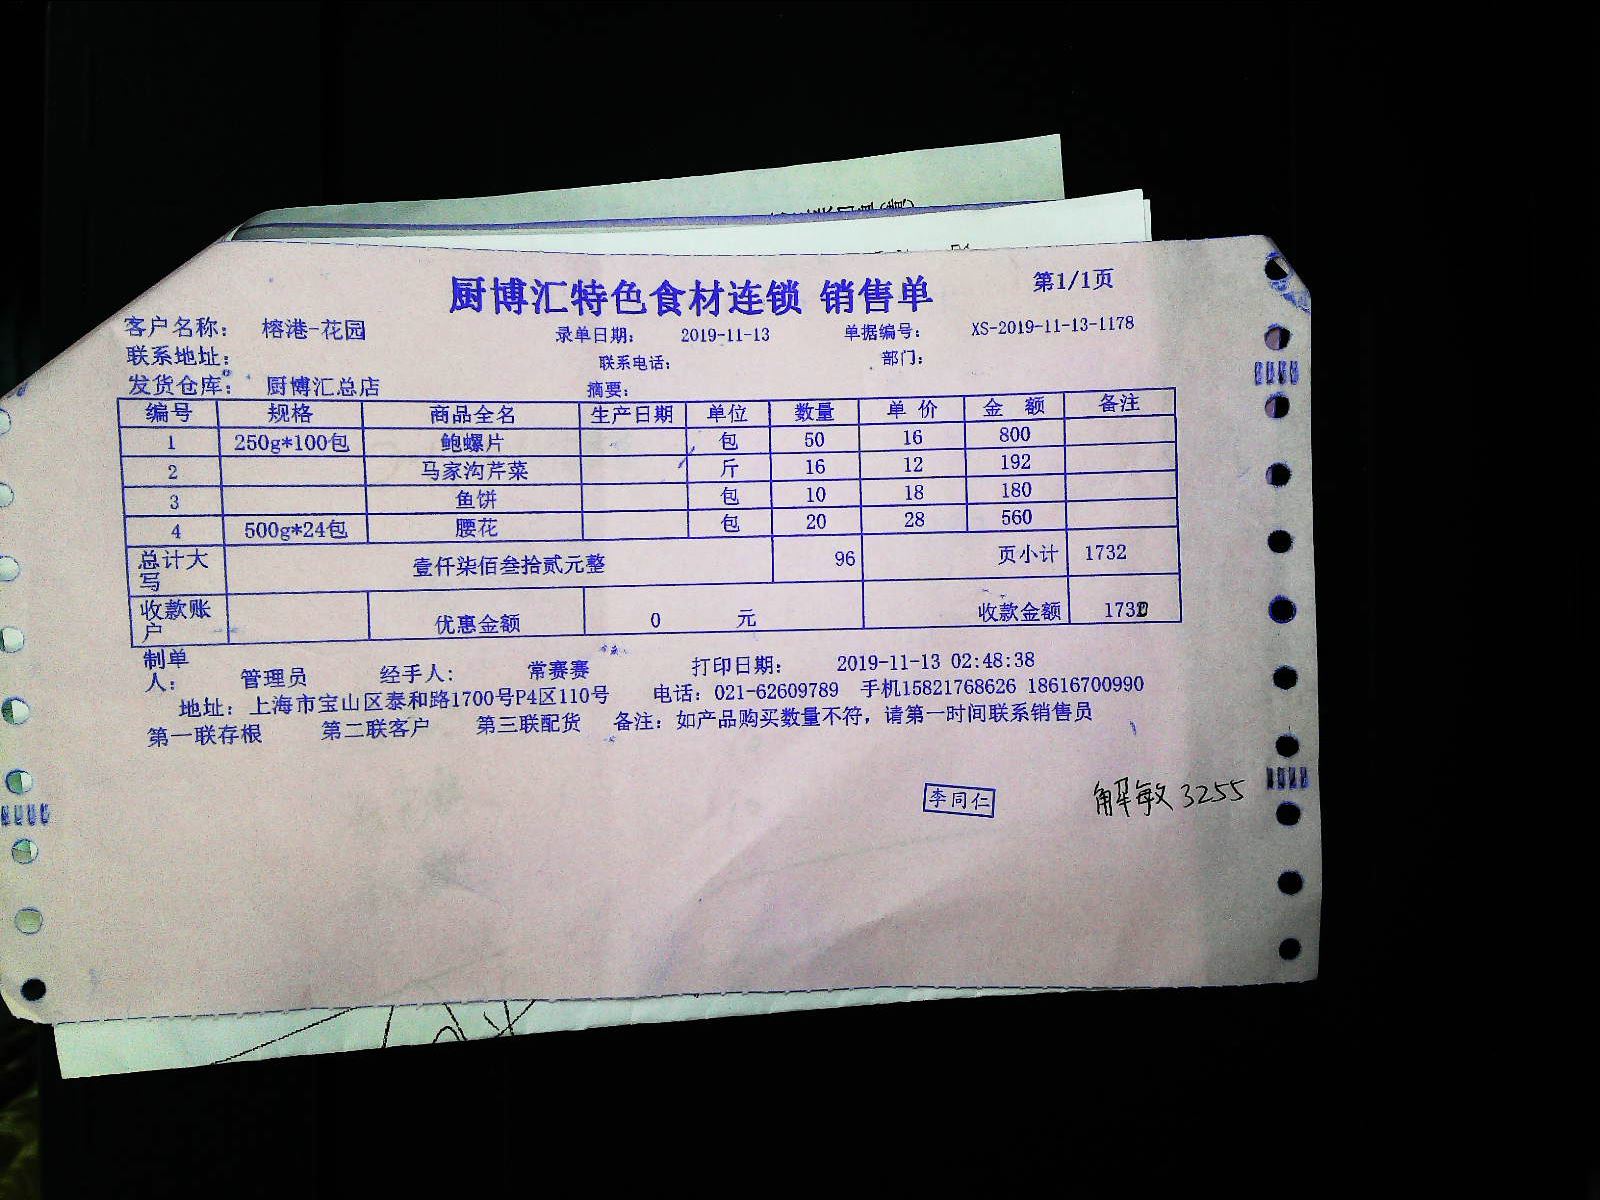 厨博汇特色食材连锁 销售单 第1/1页
客户名称: 榕港-花园 录单日期: 2019-11-13 单据编号: XS-2019-11-13-1178
联系地址: 联系电话: 部门:
发货仓库: 厨博汇总店 摘要:
编号 规格 商品全名 生产日期 单位 数量 单价 金额 备注
1 250g*100包 鲍螺片 包 50 16 800
2 马家沟芹菜 斤 16 12 192
3 鱼饼 包 10 18 180
4 500g*24包 腰花 包 20 28 560
总计大写 壹仟柒佰叁拾贰元整 96 页小计 1732
收款账户 优惠金额 0 元 收款金额 1732
制单人: 管理员 经手人: 常赛赛 打印日期: 2019-11-13 02:48:38
地址: 上海市宝山区泰和路1700号P4区110号 电话: 021-62609789 手机15821768626 18616700990
第一联存根 第二联客户 第三联配货 备注: 如产品购买数量不符, 请第一时间联系销售员
李同仁 解敏 3255